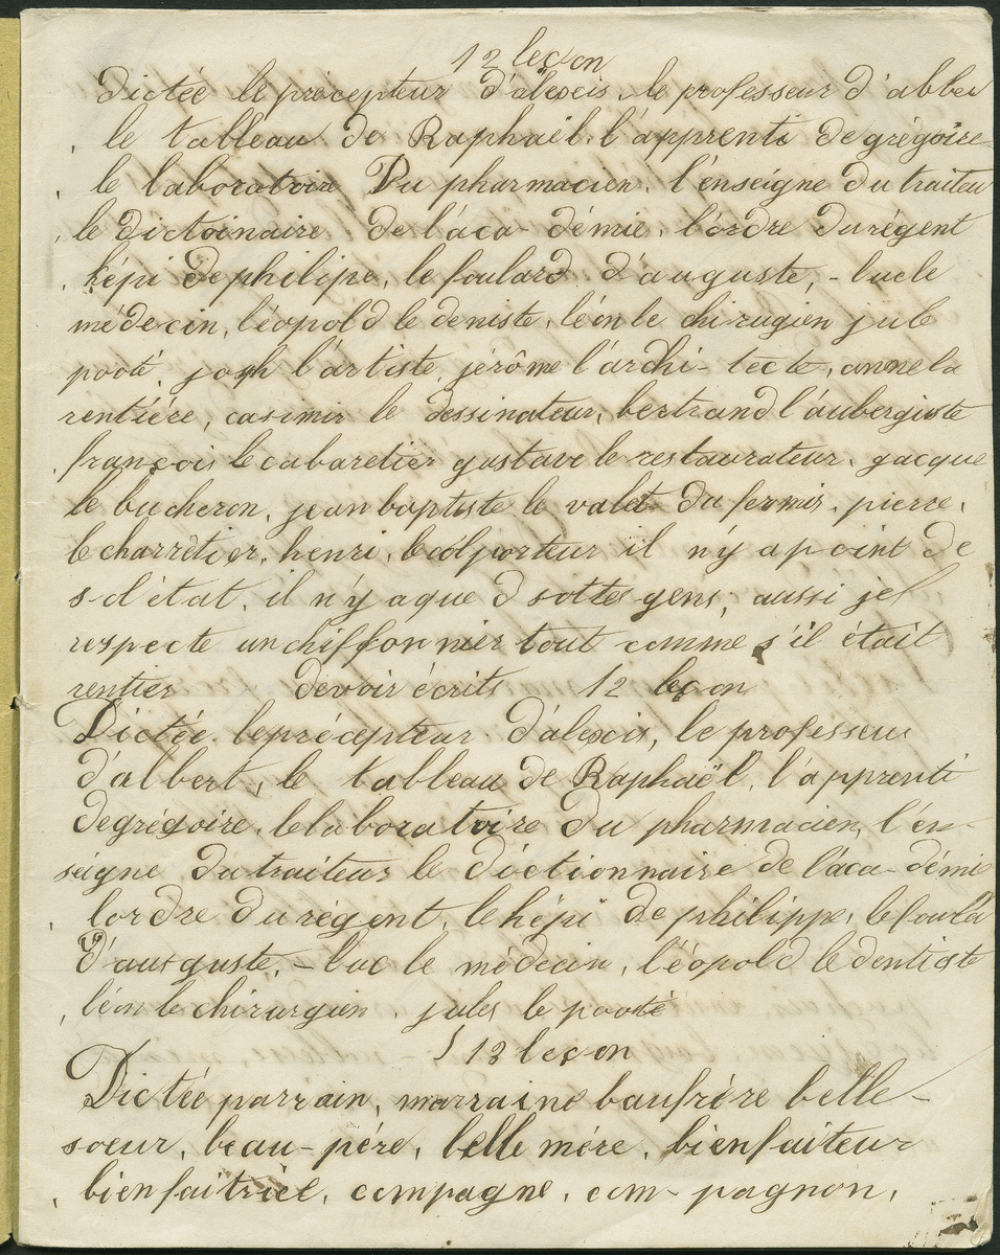 12 leçon
Dictée le précepteur d'alexcis, le professeur d'abber
, le tableau de Raphaël, l'apprenti de grégoire
, le laboratoire Du pharmacien, l'enseigne du traiteu
, le dictoinaire de l'áca-démie, l'ordre du régent
, képi de philipe, le foulard d'auguste, - luc le
médecin, léopold le deniste, léon le chirugien jule
pooté, josph l'artiste, jérôme l'archi-tecte, anne la
rentiére, casimir le dessinateur, bertrand l'aubergiste
, françois le cabaretier gustave le restaurateur, gacque
le bucheron, jean baptiste le valet du fermir, pierre,
le charretier, henri, le colporteur il n'y a point de
s-d'état, il n'y a que d sottes gens; aussi je
respecte un chiffonnier tout comme s'il était
rentier devoir écrits 12 leçon
Dictée, le précepteur d'alexcis, le professeur
d'albert, le tableau de Raphaël, l'apprenti
de grégoire, le laboratoire du pharmacien, l'en-
seigne du traiteur le dictionnaire de l'áca-démie
, lordre du régent, le képi de philippe, le foula
d'aurguste, - luc le médecin, l'éopold le dentiste
, léon le chirurgien, jules le pooté
13 leçon
Dictée parrain, marraine baufrére belle-
soeur, beau-pére, belle mére, bienfaiteur
, bienfaitrice, compagne, com-pagnon,